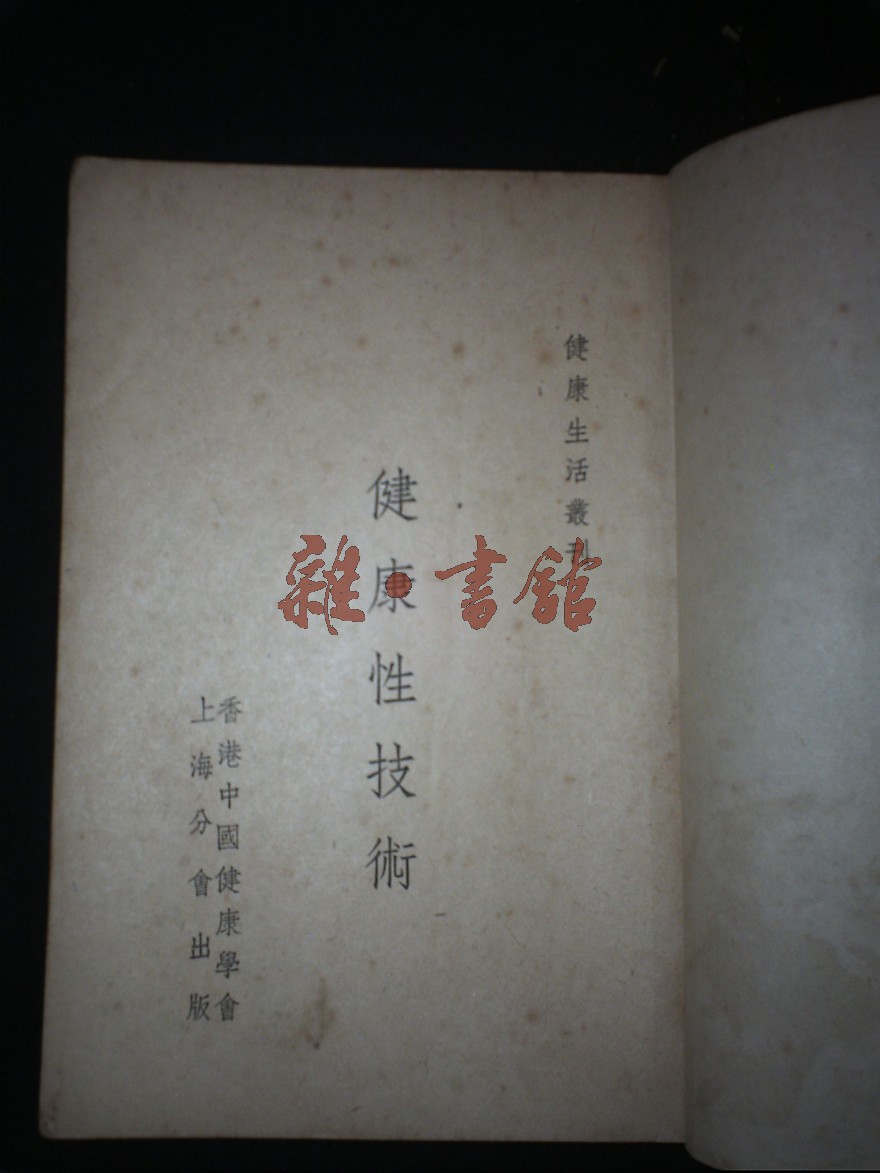 健康生活叢刊
健康性技術
香港中國健康學會
上海分會出版
雜·書館